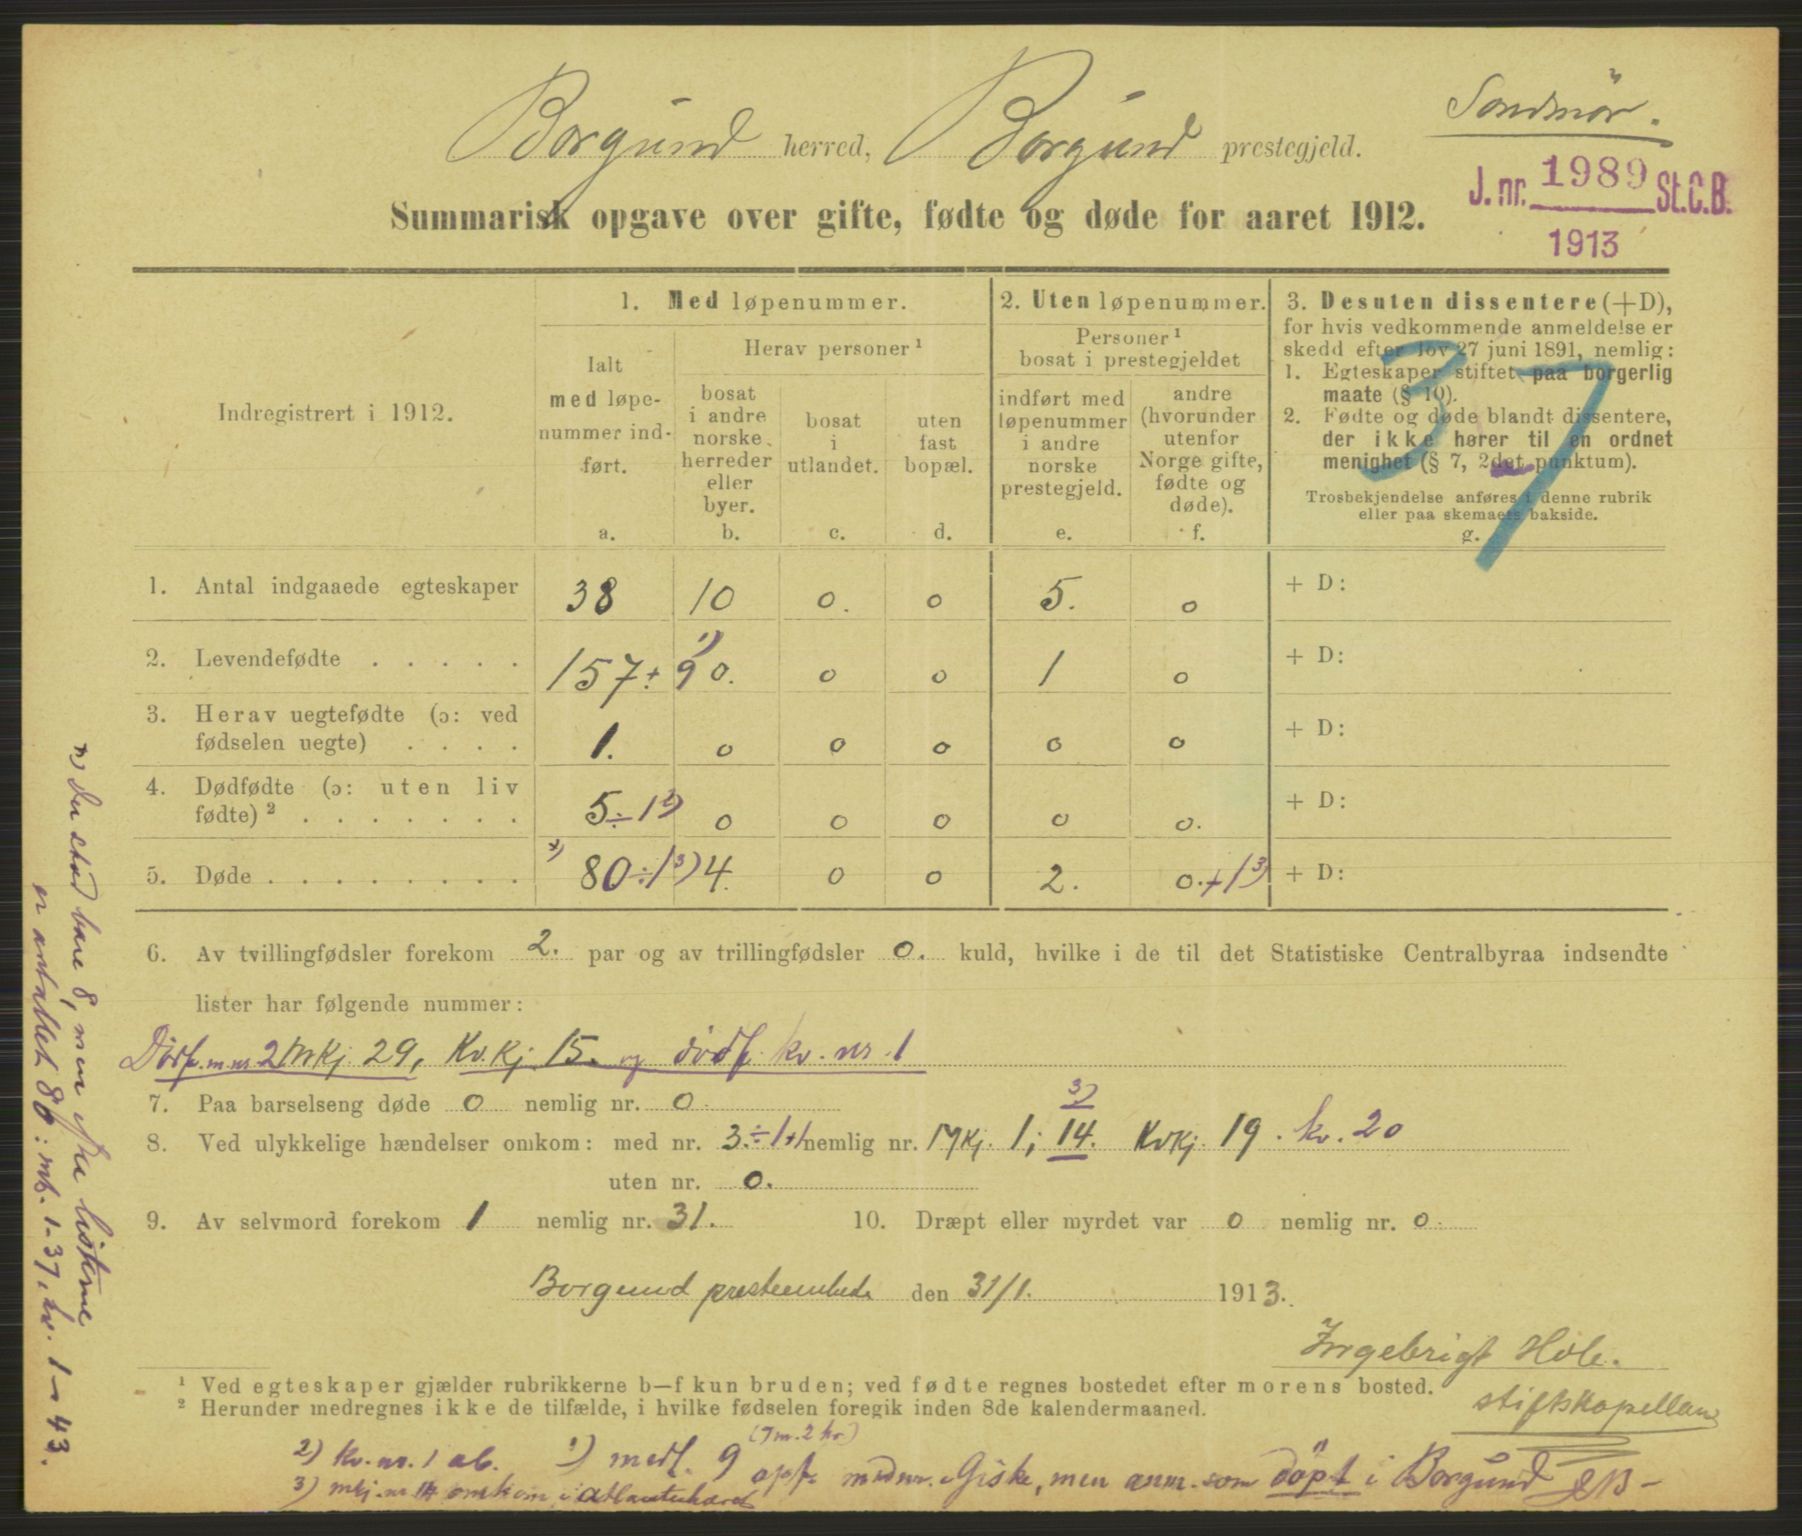 Søndmör.
Borgund herred, Borgund prestegjeld.
J. nr. 1989 St.C.B.
1913
Summarisk opgave over gifte, fødte og døde for aaret 1912.
Indregistrert i 1912.
1. Med løpenummer.
Ialt med løpenummer indført.
a.
Herav personer ¹
bosat i andre norske herreder eller byer.
b.
bosat i utlandet.
c.
uten fast bopæl.
d.
2. Uten løpenummer.
Personer ¹ bosat i prestegjeldet
indført med løpenummer i andre norske prestegjeld.
e.
andre (hvorunder utenfor Norge gifte, fødte og døde).
f.
3. Desuten dissentere (+D),
for hvis vedkommende anmeldelse er
skedd efter lov 27 juni 1891, nemlig:
1. Egteskaper stiftet paa borgerlig
maate (§ 10).
2. Fødte og døde blandt dissentere,
der ikke hører til en ordnet
menighet (§ 7, 2det punktum).
Trosbekjendelse anføres i denne rubrik
eller paa skemaets bakside.
g.
37
1. Antal indgaaede egteskaper 38 10 0. 0 5. 0 + D:
2. Levendefødte . . . . . 157 + 9 ¹) 0. 0 0 1 0 + D:
3. Herav uegtefødte (ɔ: ved
fødselen uegte) . . . . 1. 0 0 0 0 0 + D:
4. Dødfødte (ɔ: uten liv
fødte) ² . . . . . . . 5 ÷ 1 ²) 0 0 0 0 0. + D:
5. Døde . . . . . . . . ×) 80 ÷ 1 ³) 4. 0 0 2. 0. + 1 ³) + D:
6. Av tvillingfødsler forekom 2. par og av trillingfødsler 0. kuld, hvilke i de til det Statistiske Centralbyraa indsendte
lister har følgende nummer:
Dödf. m. nr 2 Mkj. 29, Kv.kj. 15. og dödf. kv. nr. 1
7. Paa barselseng døde 0 nemlig nr. 0.
8. Ved ulykkelige hændelser omkom: med nr. 3. ÷ 1 + 1 nemlig nr. Mkj. 1; 14. ³) Kvkj. 19. kv. 20
uten nr. 0.
9. Av selvmord forekom 1 nemlig nr. 31. 10. Dræpt eller myrdet var 0 nemlig nr. 0.
Borgund presteembede den 31/1. 1913.
Ingebrigt Hole.
stiftskapellan
¹ Ved egteskaper gjælder rubrikkerne b—f kun bruden; ved fødte regnes bostedet efter morens bosted.
² Herunder medregnes ikke de tilfælde, i hvilke fødselen foregik inden 8de kalendermaaned.
2) kv. nr. 1 ab. 1) medf. 9 (7 m. 2 kv.) opf. med nr. i Giske, men anm. som döpt i Borgund
3) mkj. nr 14 omkom i Atlanterhavet
×) Her stod bare 8, men efter listerne
er antallet 80: mk. 1-37, kv. 1-43.